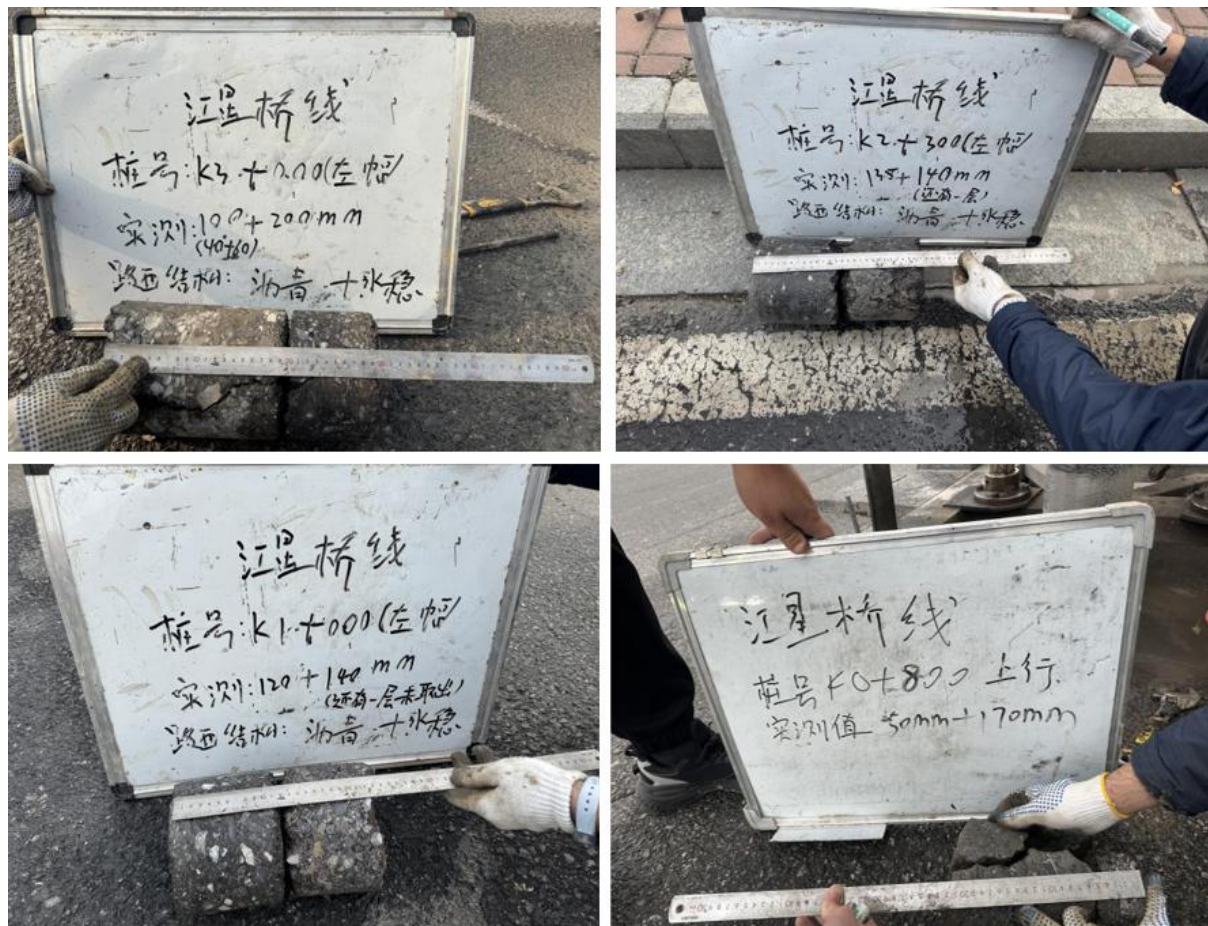 江星桥线
桩号:K3+000(左幅)
实测:100+200mm
(40+60)
路面结构: 沥青+水稳
江星桥线
桩号:K2+300(左幅)
实测:135+140mm
(还有一层)
路面结构: 沥青+水稳
江星桥线
桩号:K1+000(左幅)
实测:120+140mm
(还有一层未取出)
路面结构: 沥青+水稳
江星桥线
桩号K0+800 上行
实测值 50mm+170mm